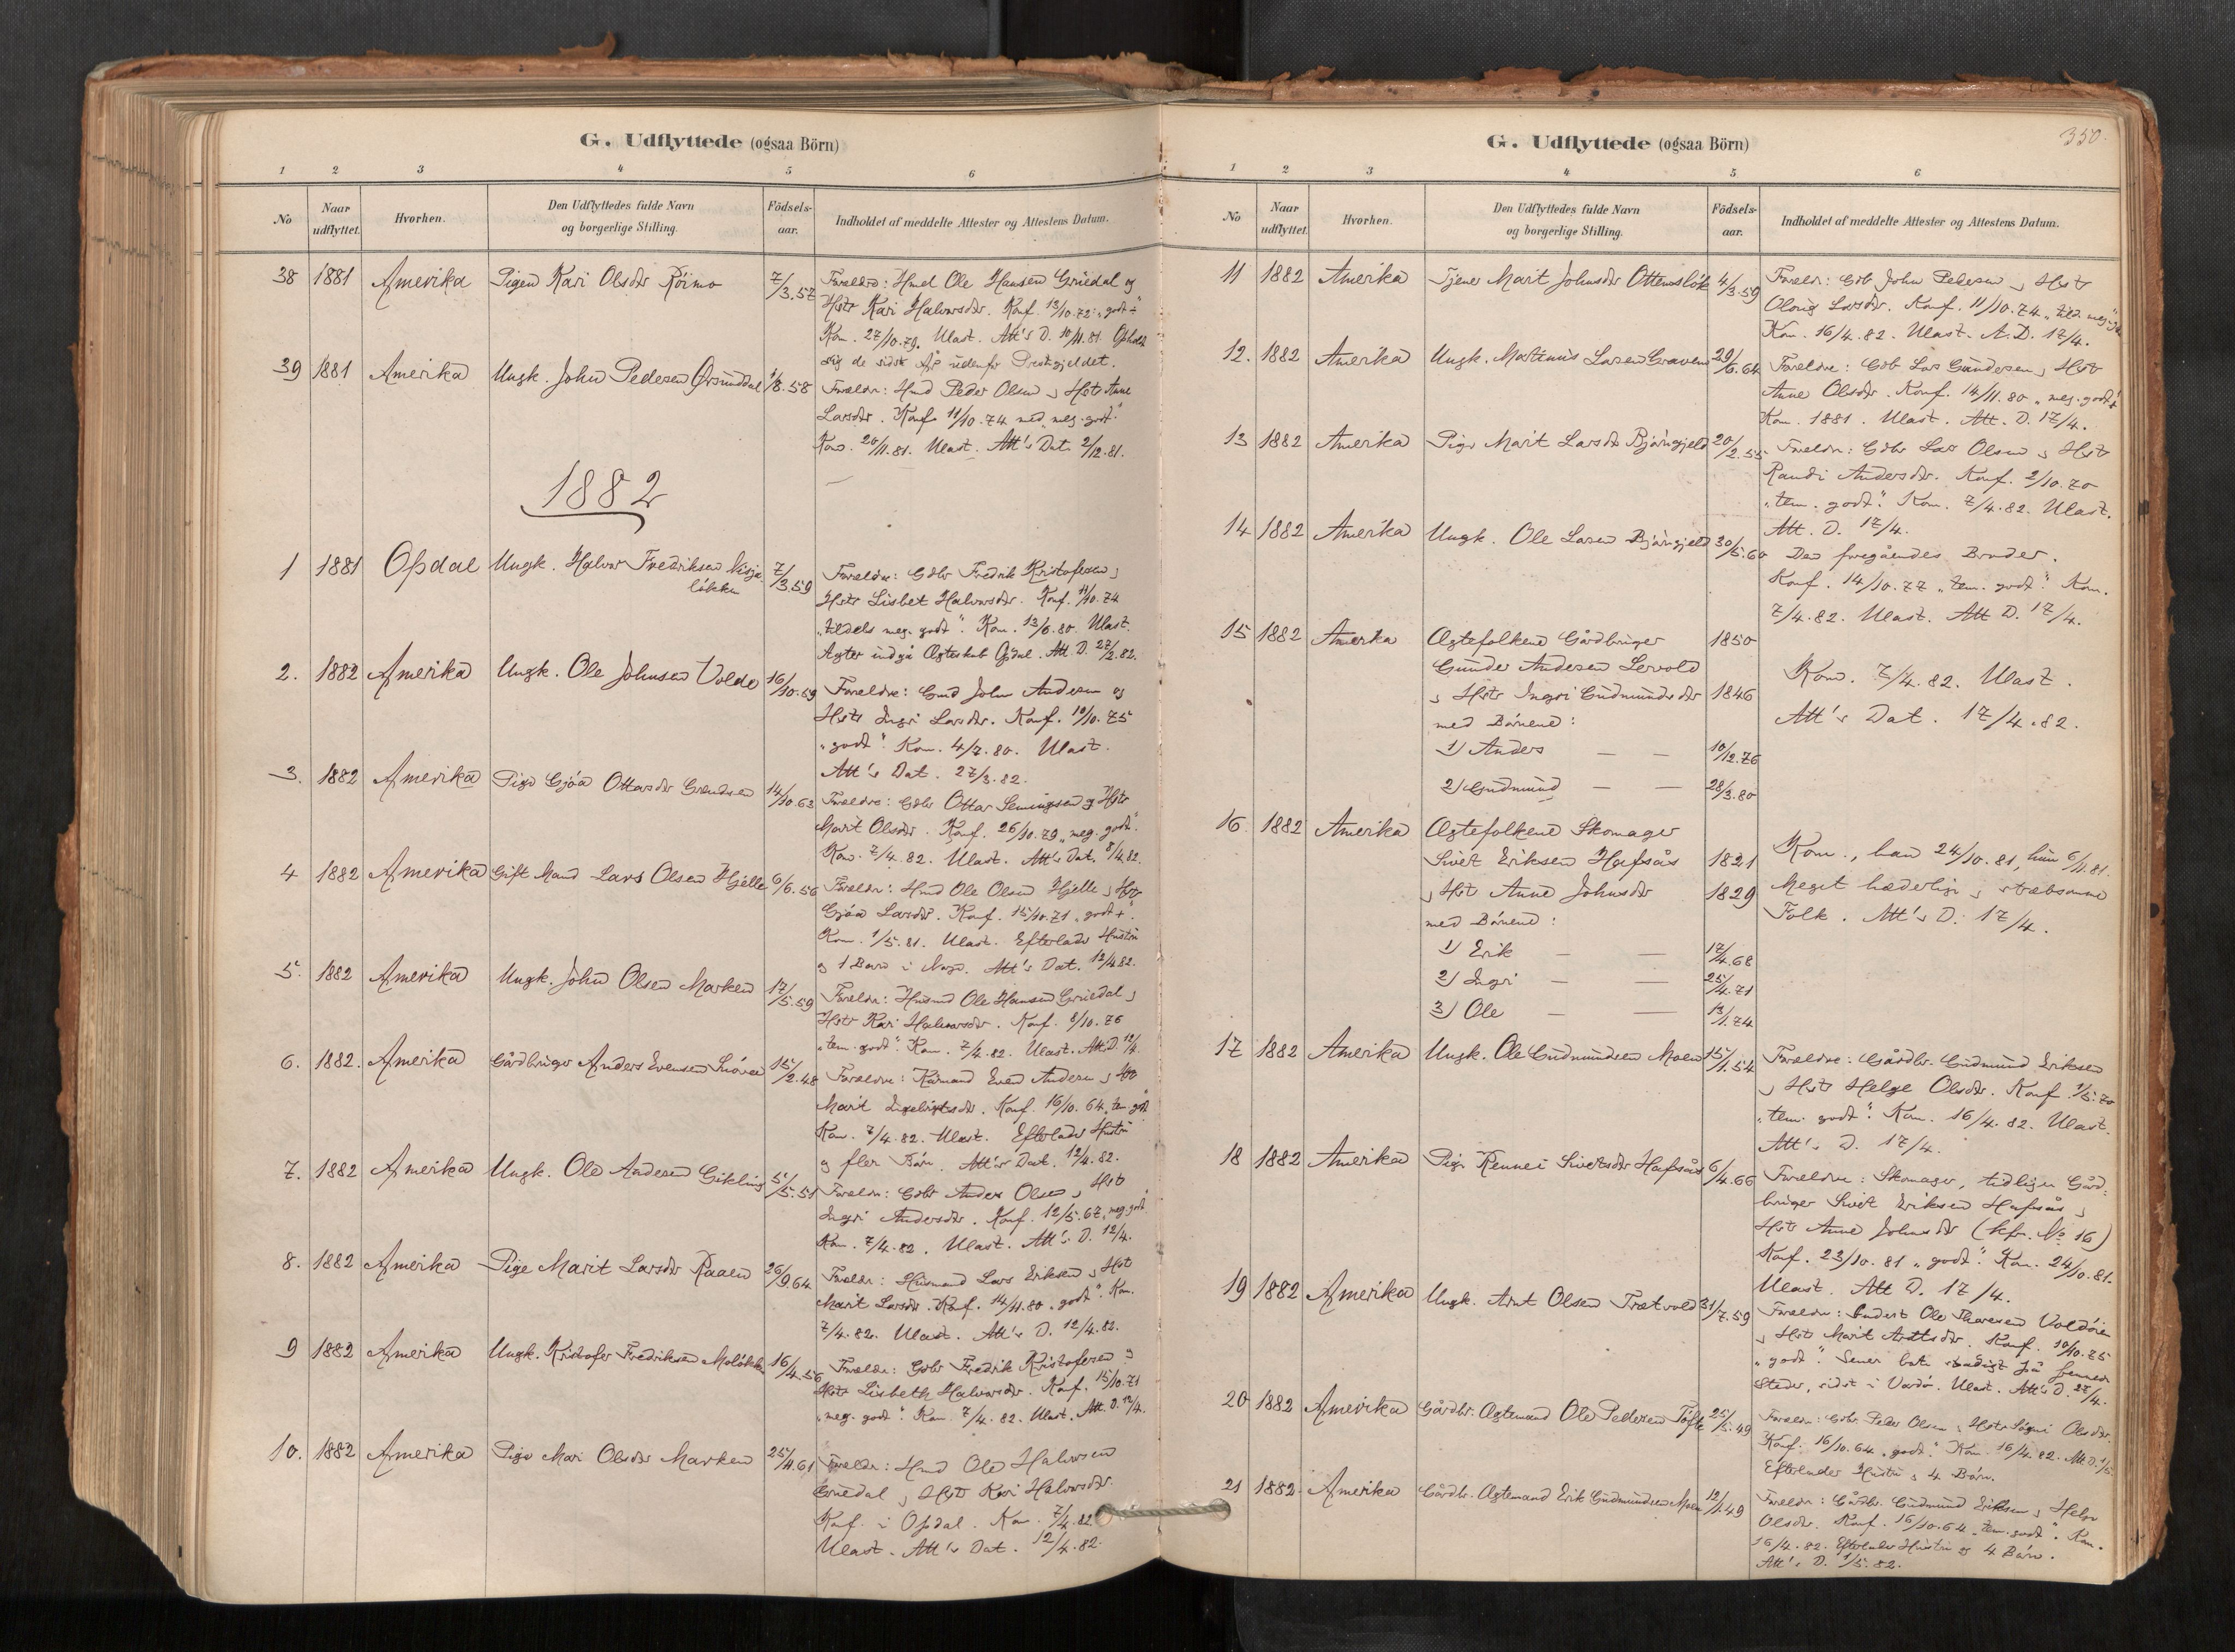 G. Udflyttede (ogsaa Börn)
1 2 3 4 5 6
No Naar udflyttet. Hvorhen. Den Udflyttedes fulde Navn og borgerlige Stilling. Födsels-aar. Indholdet af meddelte Attester og Attestens Datum.
38 1881 Amerika Pigen Kari Olsdr Röimo 7/3.57 Forældre: Hmd Ole Hansen Gruedal og
Hstr Kari Halvorsdr. Konf. 13/10.72: "godt+"
Kom. 27/10.79. Ulast. Att's D. 10/11.81. Opholdt
sig de sidste År udenfor Prestegjeldet.
39 1881 Amerika Ungk. John Pedersen Ørsunddal 1/8.58 Forældr: Hmd Peder Olsen og Hstr Anne
Larsdr. Konf. 11/10.74 med "meg. godt."
Kom. 20/11.81. Ulast. Att's Dat. 2/12.81.
1882
1 1881 Opdal Ungk. Halvor Fredriksen 7/3.59 Forældre: Gdbr Fredrik Kristofersen,
løkken Hstr Lisbet Halvorsdr. Konf. 11/10.74
"tildels meg. godt". Kom. 13/6.80. Ulast.
Agter indgå Ægteskab Opdal. Att. D. 27/2.82.
2. 1882 Amerika Ungk. Ole Johnsen Volde 16/10.59 Forældre: Gmd John Andersen og
Hstr Ingri Larsdr. Konf. 10/10.75
"godt". Kom. 4/7.80. Ulast.
Att's Dat. 27/3.82.
3. 1882 Amerika Pige Gjöa Ottarsdr 14/10.63 Forældre: Gdbr Ottar Semingsen og Hstr
Marit Olsdr. Konf. 26/10.79 "meg. godt".
Kom. 7/4.82. Ulast. Att's Dat. 8/4.82.
4 1882 Amerika Gift Mand Lars Olsen Hjelle 6/6.56 Forældr: Hmd Ole Olsen Hjelle og Hstr
Gjöa Larsdr. Konf. 15/10.71 "godt+".
Kom. 1/5.81. Ulast. Efterlader Hustru
og 1 Barn i Norge. Att's Dat. 12/4.82.
5. 1882 Amerika Ungk. John Olsen Marken 17/5.59 Forældr: Husmd Ole Hansen Gruedal og
Hstr Kari Halvorsdr. Konf. 8/10.76
"tem. godt". Kom. 7/4.82. Ulast. Att. D. 12/4.
6. 1882. Amerika Gårdbruger Anders Evensen 15/2.48 Forældre: Kårmand Even Andersen og Hstr
Marit Ingebrigtsdr. Konf. 16/10.64 "tem. godt"
Kom. 7/4.82. Ulast. Efterlader Hustru
og flere Börn. Att's Dat. 12/4.82.
7. 1882 Amerika Ungk. Ole Andersen Gikling 5/5.51 Forældr: Gdbr Anders Olsen og Hstr
Ingri Andersdr. Konf. 12/5.67 "meg. godt"
Kom. 7/4.82. Ulast. Att's D. 12/4.
8. 1882 Amerika Pige Marit Larsdr Raaen 26/9.64 Forældr: Husmand Lars Eriksen og Hst
Marit Larsdr. Konf. 14/11.80 "godt". Kom.
7/4.82. Ulast. Att's D. 12/4.82.
9 1882 Amerika Ungk. Kristofer Fredriksen Moløkken 16/4.56 Forældr: Gdbr Fredrik Kristofersen og
Hstr Lisbeth Halvorsdr. Konf. 15/10.71
"meg. godt". Kom. 7/4.82. Ulast. Att. D. 12/4.
10. 1882 Amerika Pige Mari Olsdr Marken 25/4.61 Forældr: Hmd Ole Halvorsen
Gruedal og Hstr Kari Halvorsdr.
Konf. i Opdal. Kom. 7/4.82
Ulast. Att's Dat. 12/4.82.
350.
G. Udflyttede (ogsaa Börn)
1 2 3 4 5 6
No Naar udflyttet. Hvorhen. Den Udflyttedes fulde Navn og borgerlige Stilling. Födsels-aar. Indholdet af meddelte Attester og Attestens Datum.
11 1882 Amerika Tjener Marit Johnsdr Ottemsløk 4/3.59 Forældr: Gdb John Pedersen og Hstr
Larsdr. Konf. 11/10.74 "tild. meg.
Kom. 16/4.82. Ulast. A. D. 17/4.
12. 1882 Amerika Ungk. Martinus Larsen Gravem 29/6.64 Forældre: Gdb Lars Gundersen og Hst
Anne Olsdr. Konf. 14/11.80 "meg. godt+"
Kom. 1881. Ulast. Att. D. 17/4.
13 1882 Amerika Pige Marit Larsdr Bjørngjeld 20/2.55 Forældr: Gdbr Lars Olsen og Hst
Randi Andersdr. Konf. 2/10.70
"tem. godt". Kom. 7/4.82. Ulast.
Att. D. 17/4.
14 1882 Amerika Ungk. Ole Larsen Bjørngjeld 30/5.60 Den foregåendes Broder.
Konf. 14/10.77 "tem. godt." Kom.
7/4.82. Ulast. Att D. 17/4.
15 1882 Amerika Ægtefolkene Gårdbruger 1850
Gunder Andersen Lervold Kom. 7/4.82. Ulast.
og Hstr Ingri Gudmundsdr 1846
med Börnene: Att's Dat. 17/4.82.
1) Anders — — 10/12.76
2) Gudmund — — 28/3.80
16. 1882 Amerika Ægtefolkene Skomager
Sivert Eriksen Hafsås 1821 Kom., han 24/10.81, hun 6/11.81.
og Hst Anne Johnsdr 1829 Meget hæderlige og stræbsomme
med Børnene: Folk. Att's D: 17/4.
1) Erik — — 17/4.68
2) Ingri — — 25/4.71
3) Ole — — 13/1.74
17 1882 Amerika Ungk. Ole Gudmundsen Moen 15/1.54 Forældre: Gårdbr. Gudmund Eriksen
og Hstr Helge Olsdr. Konf. 1/5.70
"tem. godt". Kom. 16/4.82. Ulast.
Att's D. 17/4.
18 1882 Amerika Pige Rennei Sivertsdr Hafsås 6/4.66 Forældre: Skomager, tidligere Gård-
bruger Sivert Eriksen Hafsås og
Hstr Anne Johnsdr (kfr. No 16)
Konf. 23/10.81 "godt". Kom. 24/10.81.
Ulast. Att D. 17/4.
19 1882 Amerika Ungk. Arnt Olsen Trætvold 31/7.59 Forældre: Inderst Ole Thoresen
og Hst Marit Arntsdr. Konf. 10/10.75
"godt". Senere stadigt på fremmede
Steder, sidst i Vardø. Ulast. Att's D. 27/4.
20 1882 Amerika Gårdbr. Ægtemand Ole Pedersen Tøfte 25/5.49 Forældr: Gdbr. Peder Olsen og Hstr Olsdr.
Konf. 16/10.64 "godt." Kom. 16/4.82. Att D. 1/5
Efterlader Hustru og 4 Børn.
21 1882 Amerika Gårdbr. Ægtemand Erik Gudmundsen Moen 12/1.49 Forældr: Gårdbr. Gudmund Eriksen og Helge
Olsdr. Konf. 16/10.64 "tem. godt". Kom.
16/4.82. Efterlader Hustru og 4 Børn.
Att's D. 1/5.82.